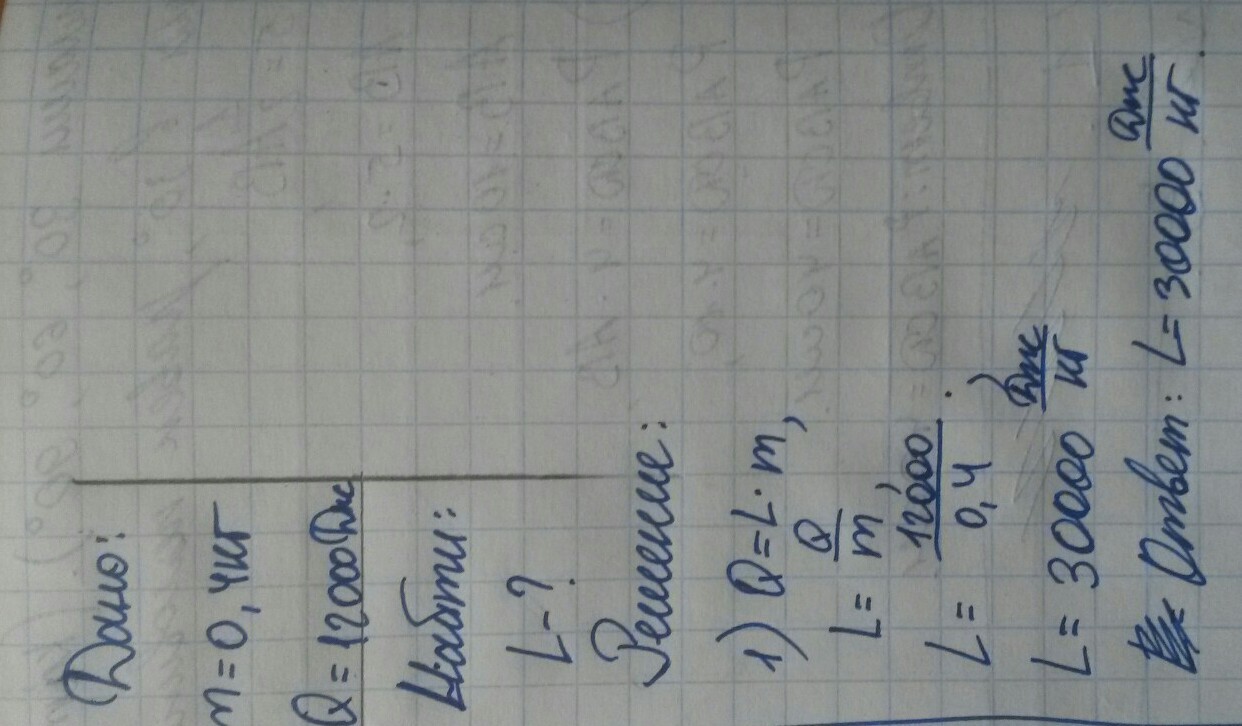 Дано:
m=0,4кг
Q=12000Дж
Найти:
L-?
Решение:
1) Q=L·m,
L=Q/m,
L=12000/0,4.
L=30000 Дж/кг
Ответ: L=30000 Дж/кг.